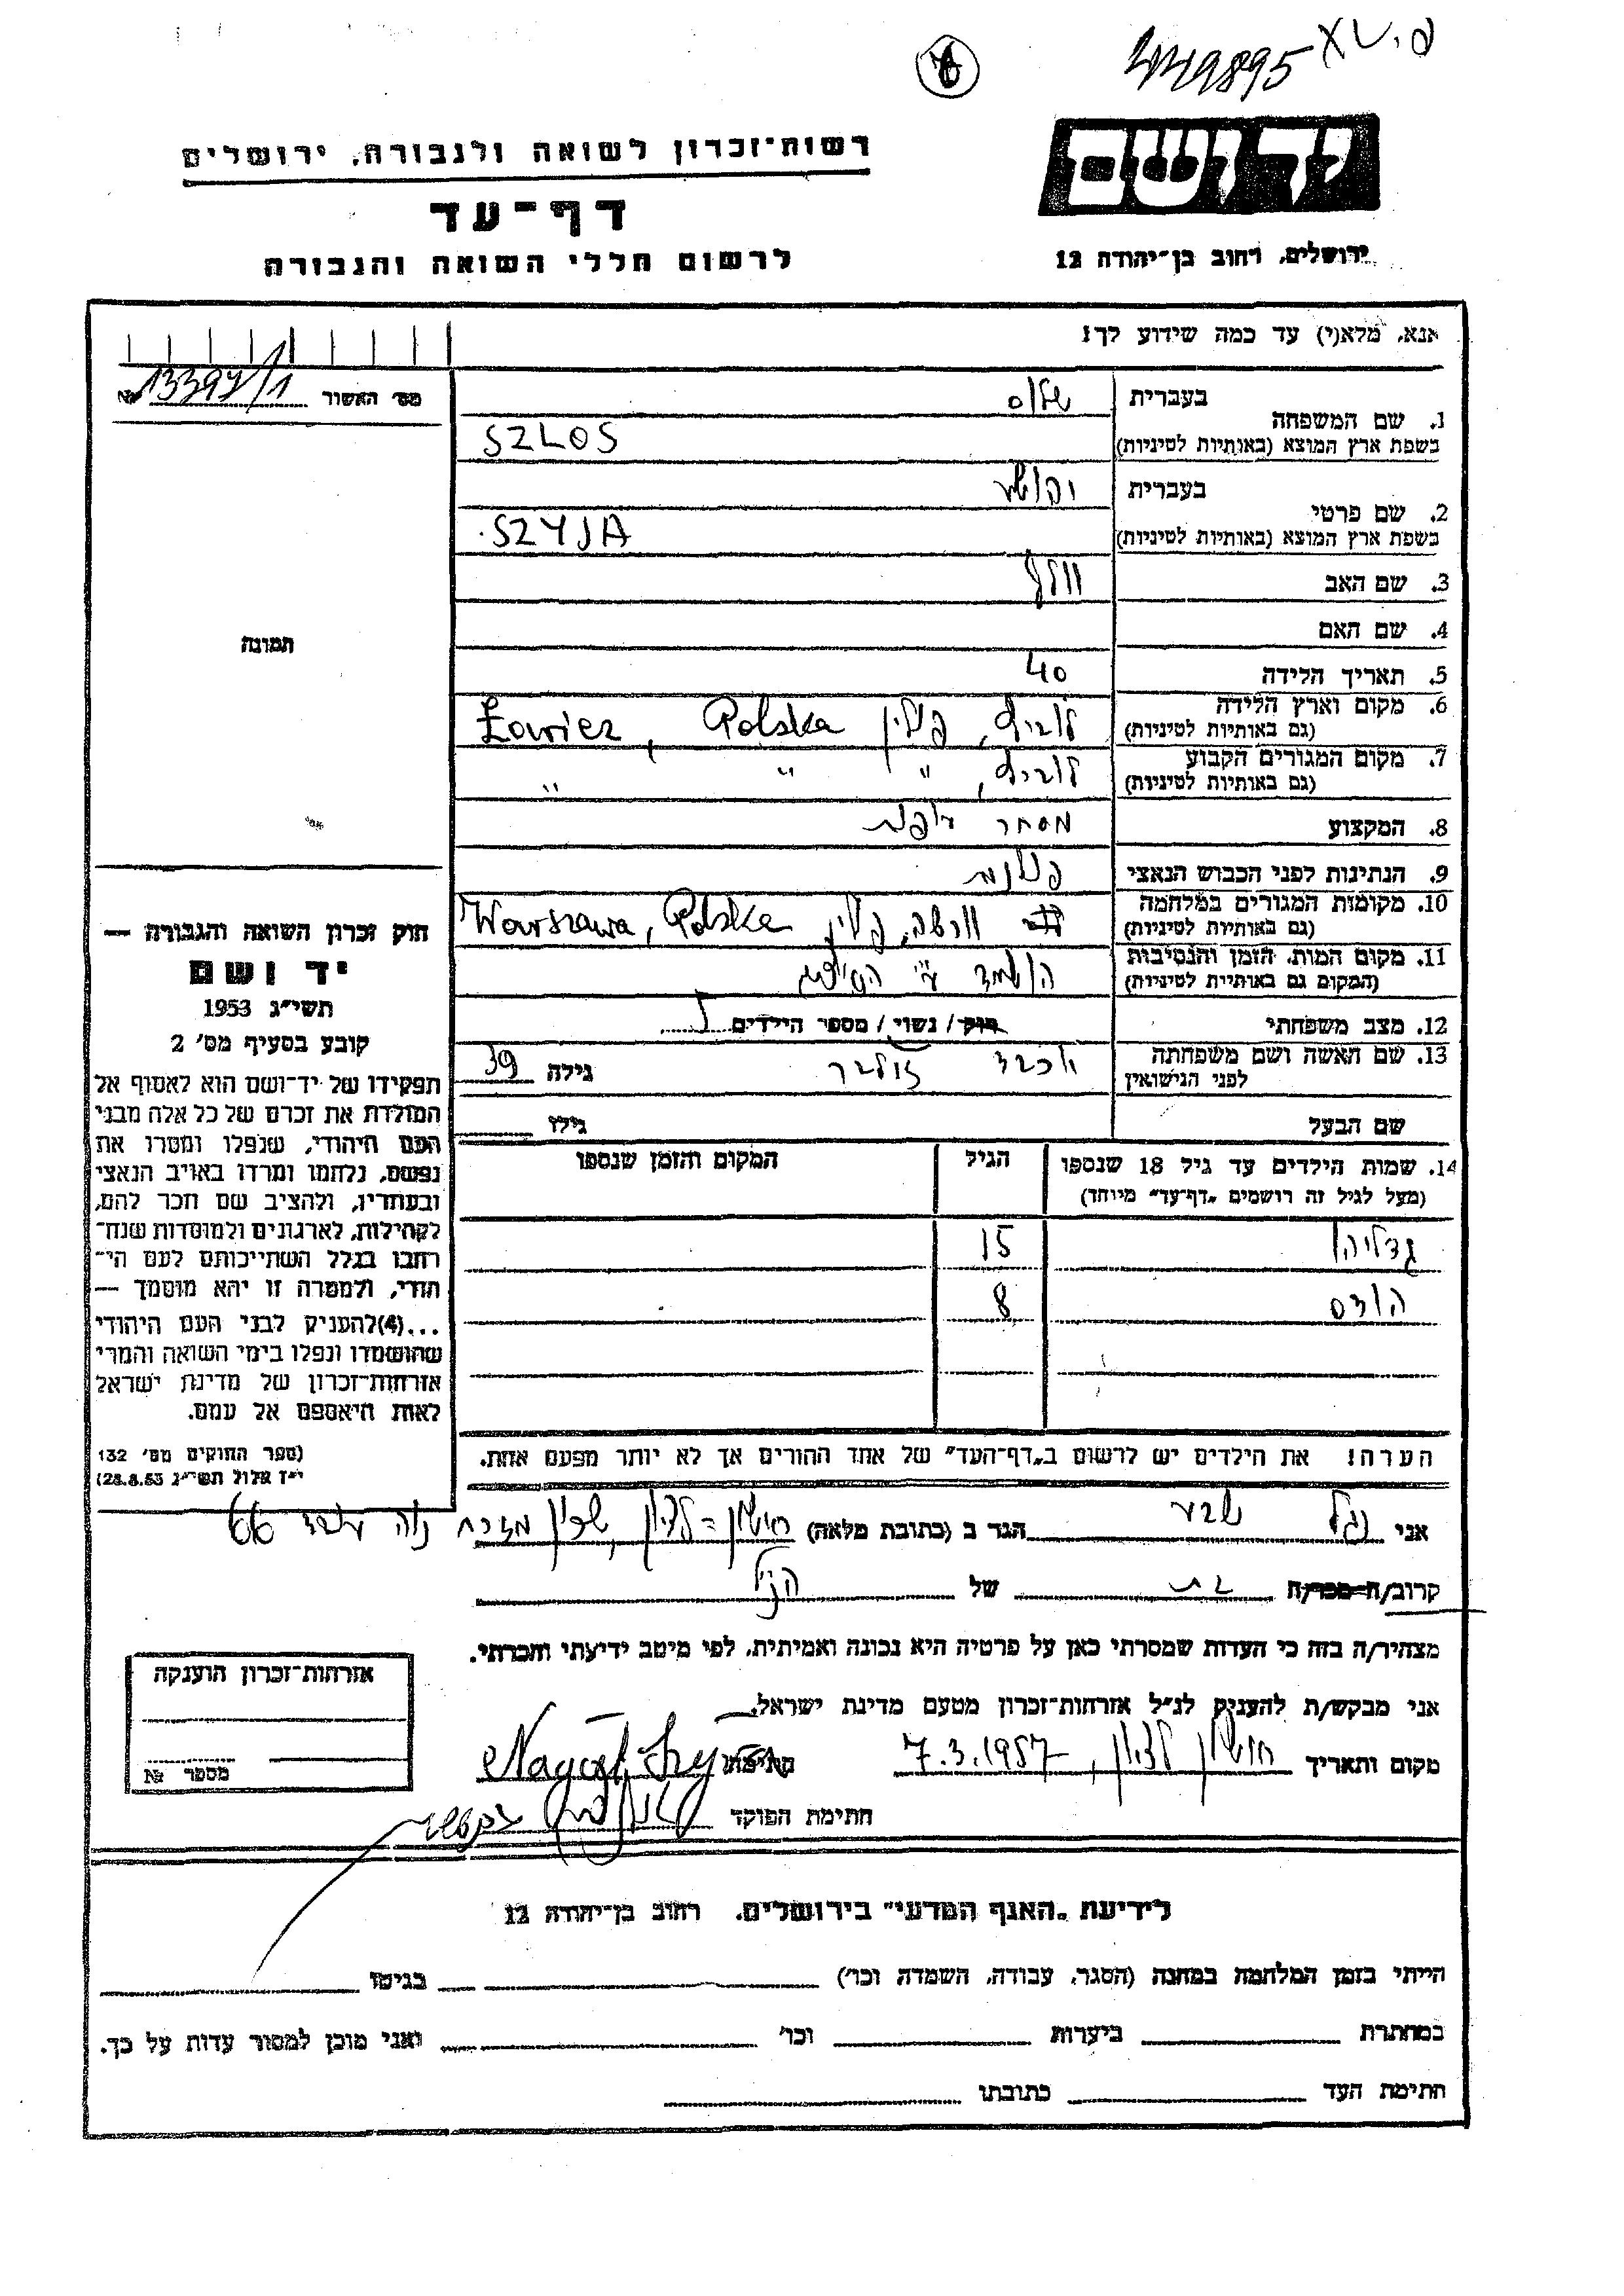 449895
רשות־זכרון לשואה ולגבורה, ירושלים
יד ושם
דף־עד
לרשום חללי השואה והגבורה
ירושלים, רחוב בן־יהודה 12
אנא, מלא(י) עד כמה שידוע לך!
מס' האשור № 13397/1
1. שם המשפחה
בעברית
בשפת ארץ המוצא (באותיות לטיניות) SZLOS
2. שם פרטי
בעברית יהושע
בשפת ארץ המוצא (באותיות לטיניות) SZYJA
3. שם האב וולף
4. שם האם
5. תאריך הלידה 40
6. מקום וארץ הלידה לוביץ, פולין Polska , Łowicz
(גם באותיות לטיניות)
7. מקום המגורים הקבוע לוביץ, " " "
(גם באותיות לטיניות)
8. המקצוע מסחר
9. הנתינות לפני הכבוש הנאצי פולנית
10. מקומות המגורים במלחמה ורשה, פולין Warszawa, Polska
(גם באותיות לטיניות)
11. מקום המות, הזמן והנסיבות הושמד ע"י
(המקום גם באותיית לטיניות)
12. מצב משפחתי רוק / נשוי / מספר הילדים
13. שם האשה ושם משפחתה יוכבד זולבר גילה 39
לפני הנישואין
שם הבעל גילו
14. שמות הילדים עד גיל 18 שנספו הגיל המקום והזמן שנספו
(מעל לגיל זה רושמים „דף־עד" מיוחד)
גדליהו 15
הודס 8
הערה! את הילדים יש לרשום ב„דף־העד" של אחד ההורים אך לא יותר מפעם אחת.
תמונה
חוק זכרון השואה והגבורה —
יד ושם
תשי"ג 1953
קובע בסעיף מס' 2
תפקידו של יד־ושם הוא לאסוף אל
המולדת את זכרם של כל אלה מבני
העם היהודי, שנפלו ומסרו את
נפשם, נלחמו ומרדו באויב הנאצי
ובעוזריו, ולהציב שם וזכר להם,
לקהילות, לארגונים ולמוסדות שנח־
רבו בגלל השתייכותם לעם הי־
הודי, ולמטרה זו יהא מוסמך —
...(4)להעניק לבני העם היהודי
שהושמדו ונפלו בימי השואה והמרי
אזרחות־זכרון של מדינת ישראל
לאות היאספם אל עמם.
(ספר החוקים מס' 132
י"ז אלול תשי"ג 28.8.53)
אני נגל שבע הגר ב (כתובת מלאה) ראשון־לציון, שכון מזרח נוה 66
קרוב/ה מכר/ה בת של הנ"ל
מצהיר/ה בזה כי העדות שמסרתי כאן על פרטיה היא נכונה ואמיתית, לפי מיטב ידיעתי והכרתי.
אני מבקש/ת להעניק לנ"ל אזרחות־זכרון מטעם מדינת ישראל.
מקום ותאריך ראשון לציון, 7.3.1957 חתימה
חתימת הפוקד
אזרחות־זכרון הוענקה
מספר №
לידיעת „האגף המדעי" בירושלים, רחוב בן־יהודה 12
הייתי בזמן המלחמה במחנה (הסגר, עבודה, השמדה וכו') בגיטו
במחתרת ביערות וכו' ואני מוכן למסור עדות על כך.
חתימת העד כתובתו